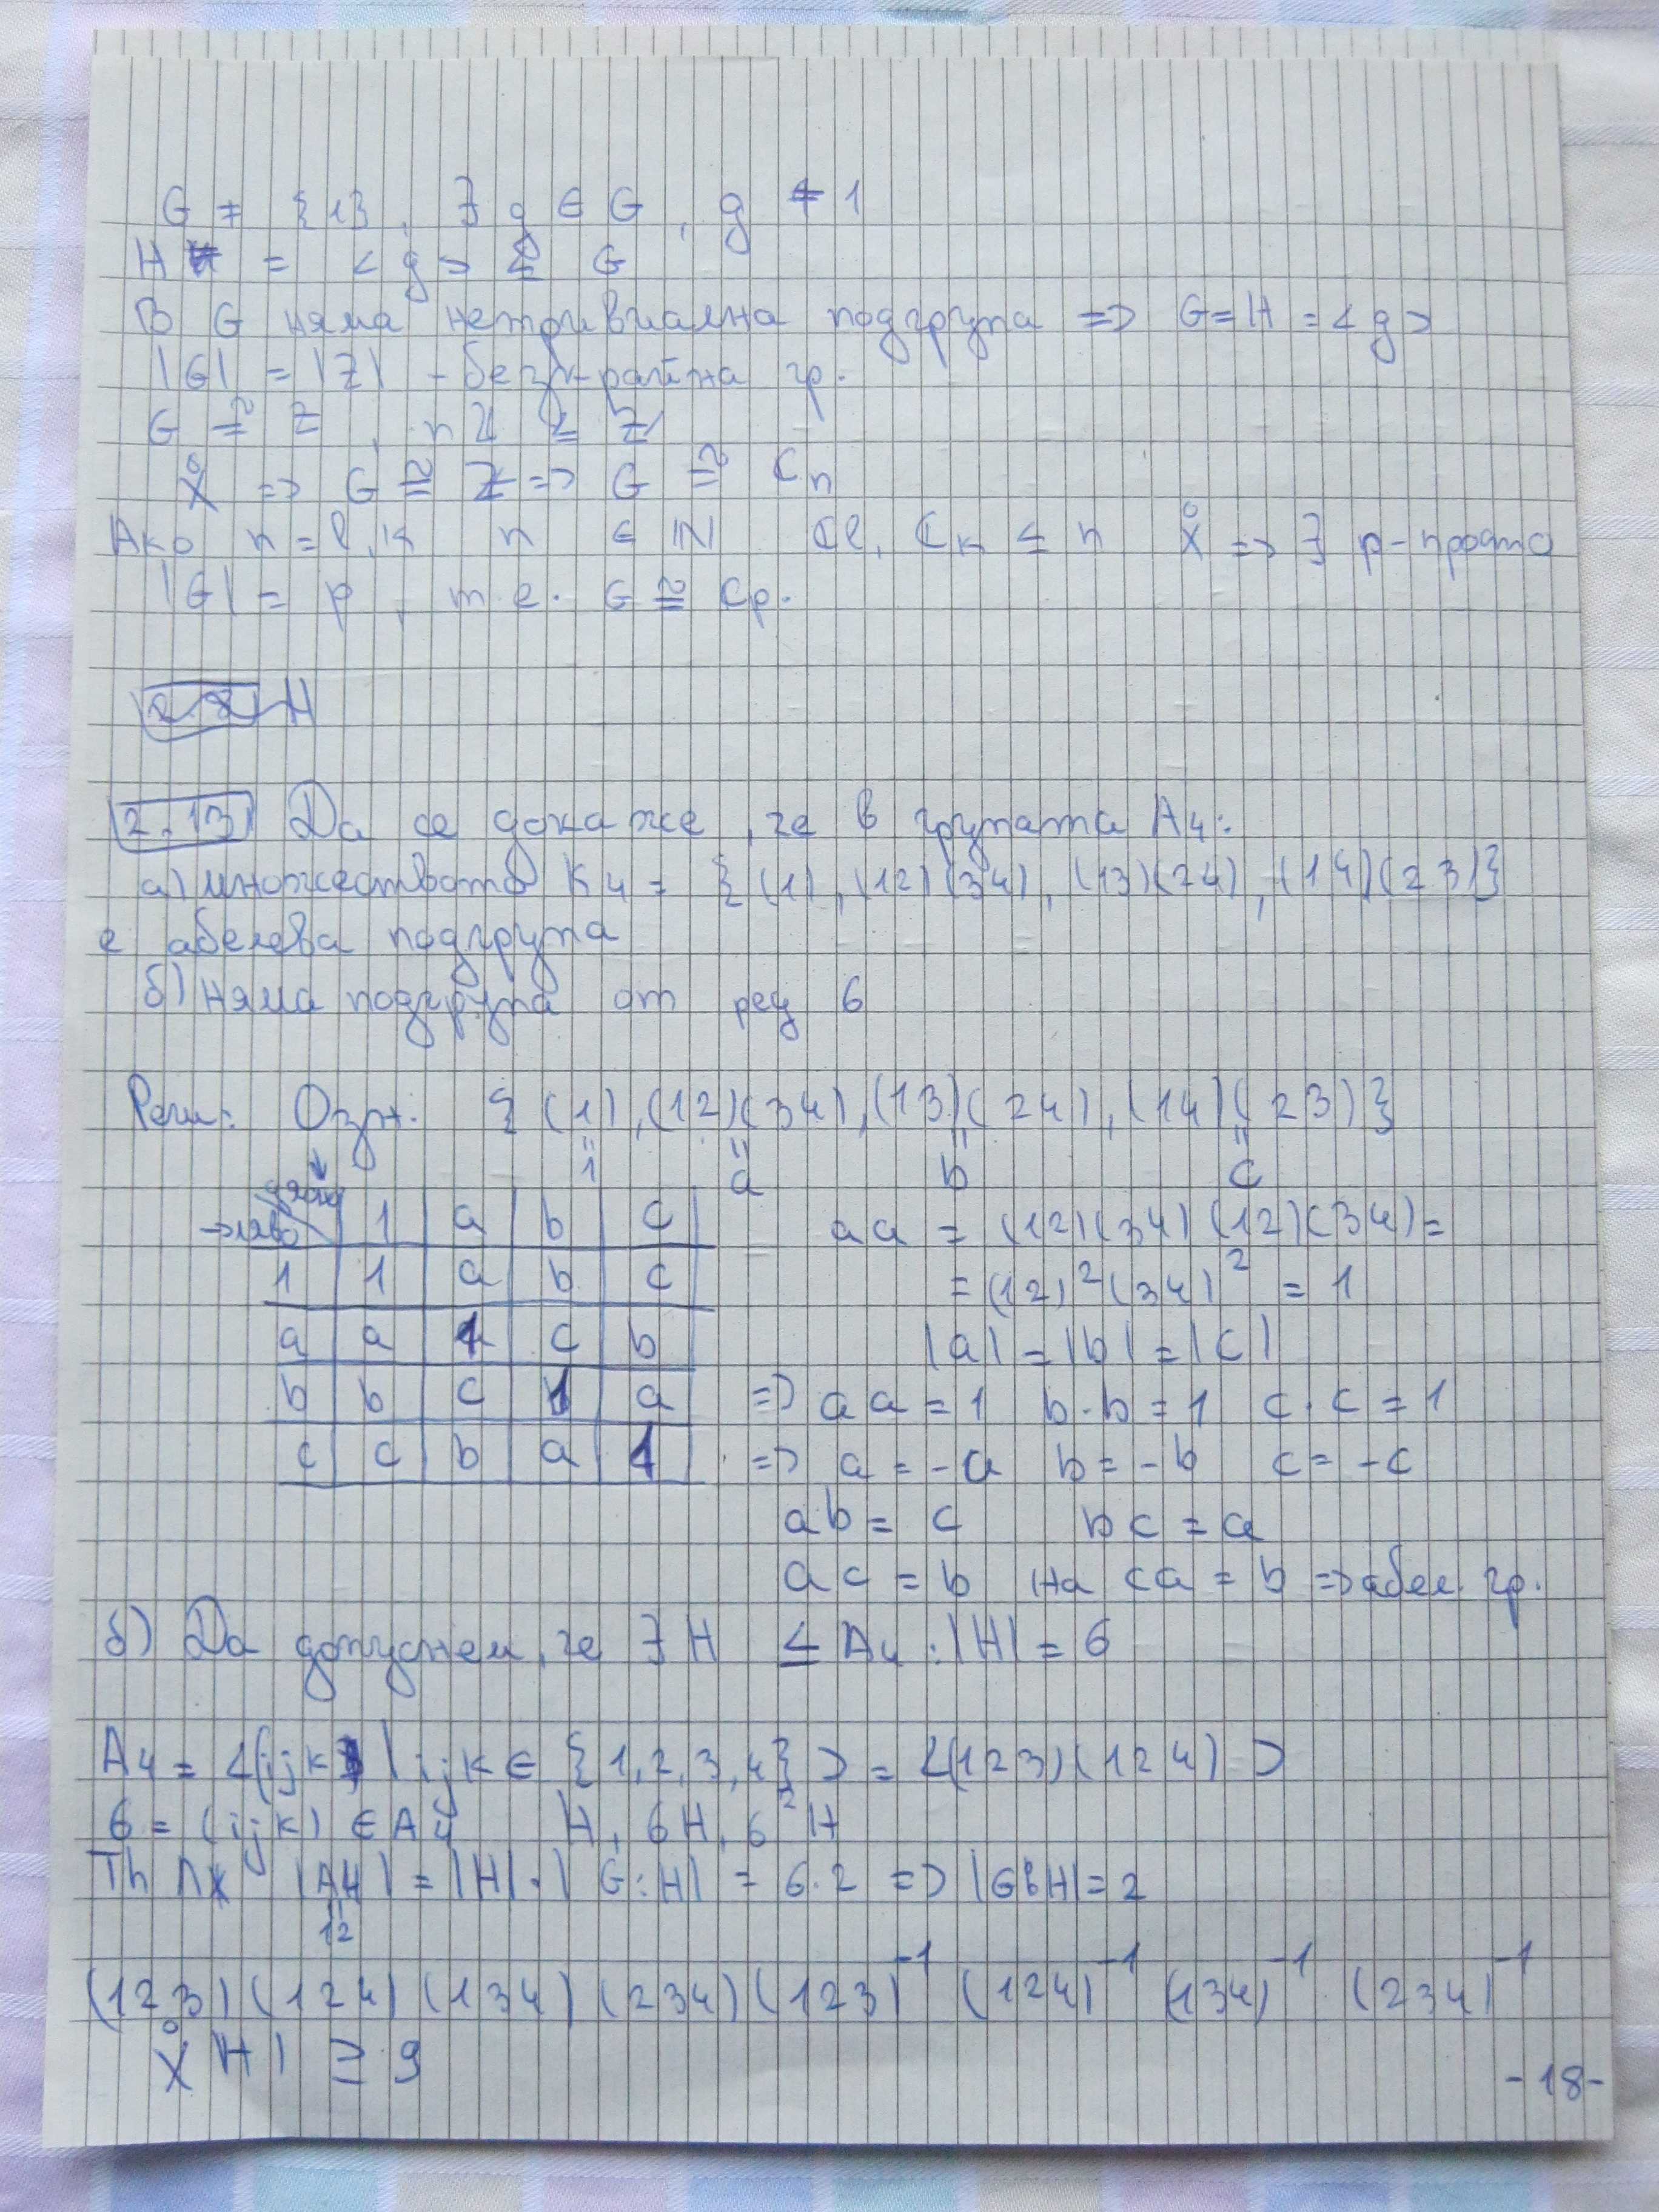 G ≠ {1}, ∃ g ∈ G, g ≠ 1
H = <g> ≤ G
В G няма нетривиална подгрупа => G = H = <g>
|G| = |Z| - безкрайна гр.
G ≅ Z, nZ ≤ Z
X => G ≇ Z => G ≅ Cn
Ако n = l.k n ∈ IN Cl, Ck ≤ n X => ∃ p-просто
|G| = p, т.е. G ≅ Cp.
2.13 Да се докаже, че в групата A4:
а) множеството K4 = {(1), (12)(34), (13)(24), (14)(23)}
е абелева подгрупа
б) няма подгрупа от ред 6
Реш: Озн. {(1), (12)(34), (13)(24), (14)(23)}
" " " "
1 a b c
дясно
→ляво 1 a b c
1 1 a b c
a a 1 c b
b b c 1 a
c c b a 1
aa = (12)(34)(12)(34) =
= (12)² (34)² = 1
|a| = |b| = |c|
=> aa = 1 b.b = 1 c.c = 1
=> a = -a b = -b c = -c
ab = c bc = a
ac = b на ca = b => абел. гр.
б) Да допуснем, че ∃ H ≤ A4 : |H| = 6
A4 = <(ijk) | ijk ∈ {1,2,3,4}> = <(123)(124)>
б = (ijk) ∈ A4 H, бH, б²H
Th Лж |A4| = |H|.|G:H| = 6.2 => |G:H| = 2
"
12
(123)(124)(134)(234)(123)⁻¹ (124)⁻¹ (134)⁻¹ (234)⁻¹
X |H| ≥ 9
-18-